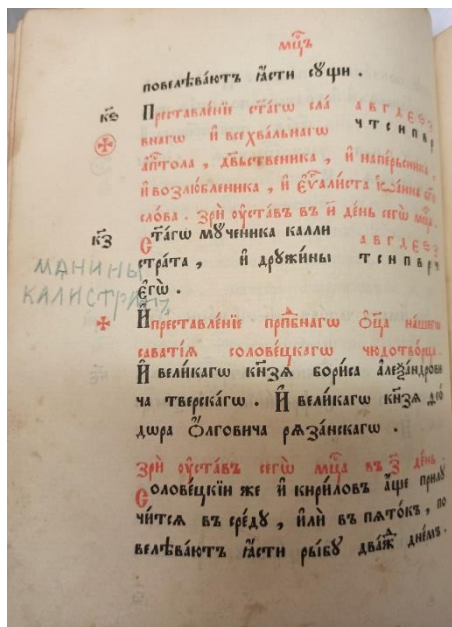 мц҃ъ
повелѣва́ютъ ꙗ҆́сти сꙋщи .
к҃ѕ
Преставле́нїе ст҃а́гѡ сла́ а в г д е ѕ з
внагѡ и҆ всехва́льнагѡ ч т с н п в р
а҆п҇тола , дв҃ственика , и҆ напе́рьсника ,
и҆ возлю́бленика , и҆ є҆ѵ҃а́листа і҆ѡа́нна бг҃о
сло́ва . зрѝ ᲂу҆ста́въ въ и҃ де́нь сегѡ̀ мц҃а .
к҃з
Ст҃а́гѡ мꙋ́ченика калли а в г д е ѕ з
стра́та , и҆ дрꙋжи́ны т с н п в р ч
є҆гѡ̀ .
МАНИНЫ
КАЛИСТРАТЪ
И҆ преставле́нїе прп҇бнагѡ ѻ҆ц҃а на́шегѡ
савва́тїѧ солове́цкагѡ чюдотво́рца .
И҆ вели́кагѡ кн҃зѧ бори́са а҆леѯа́ндрови
ча тверска́гѡ . И҆ вели́кагѡ кн҃зѧ ѳео́
дѡра ѻ҆́лговича рѧза́нскагѡ .
зрѝ ᲂу҆ста́въ сегѡ̀ мц҃а въ з҃ де́нь .
Солове́цкїи же и҆ кири́ловъ а҆́ще прилꙋ
чи́тсѧ въ сре́дꙋ , и҆лѝ въ пѧто́къ , по
велѣва́ютъ ꙗ҆́сти ры́бꙋ два́жⷣ дне́мъ .